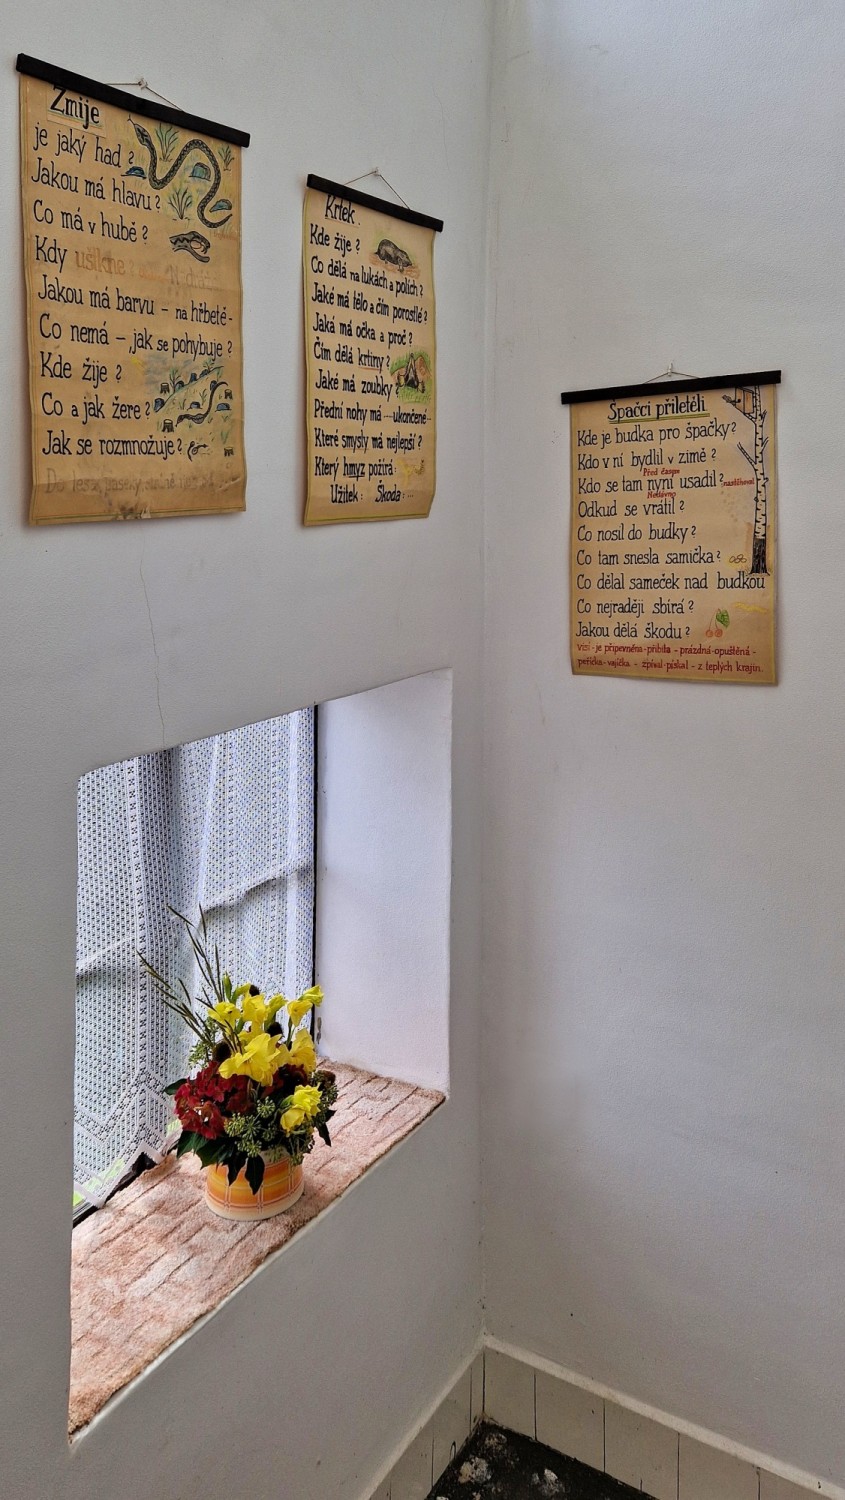 Zmije
je jaký had?
Jakou má hlavu?
Co má v hubě?
Kdy ušikne?
Jakou má barvu - na hřbetě -
Co nemá - jak se pohybuje?
Kde žije?
Co a jak žere?
Jak se rozmnožuje?
Krtek.
Kde žije?
Co dělá na lukách a polích?
Jaké má tělo a čím porostlé?
Jaká má očka a proč?
Čím dělá krtiny?
Jaké má zoubky?
Přední nohy má --- ukončené --
Které smysly má nejlepší?
Který hmyz požírá:
Užitek: Škoda: ...
Špačci přiletěli
Kde je budka pro špačky?
Kdo v ní bydlil v zimě?
Před časem
Kdo se tam nyní usadil? nastěhoval
Nedávno
Odkud se vrátil?
Co nosil do budky?
Co tam snesla samička?
Co dělal sameček nad budkou
Co nejraději sbírá?
Jakou dělá škodu?
visí - je připevněna - přibita - prázdná - opuštěná -
peříčka - vajíčka - zpíval - pískal - z teplých krajin.